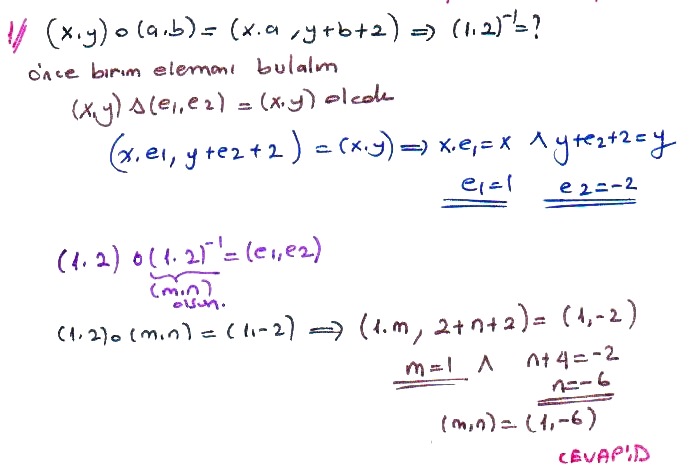 1/ (x,y) o (a,b) = (x.a , y+b+2) ⇒ (1,2)⁻¹=?
önce birim elemanı bulalım
(x,y) Δ (e₁,e₂) = (x,y) olcak
(x.e₁, y+e₂+2) = (x,y) ⇒ x.e₁=x ∧ y+e₂+2=y
e₁=1 e₂=-2
(1,2) o (1,2)⁻¹ = (e₁,e₂)
(m,n)
olsun.
(1,2) o (m,n) = (1,-2) ⇒ (1.m, 2+n+2) = (1,-2)
m=1 ∧ n+4=-2
n=-6
(m,n) = (1,-6)
CEVAP:D